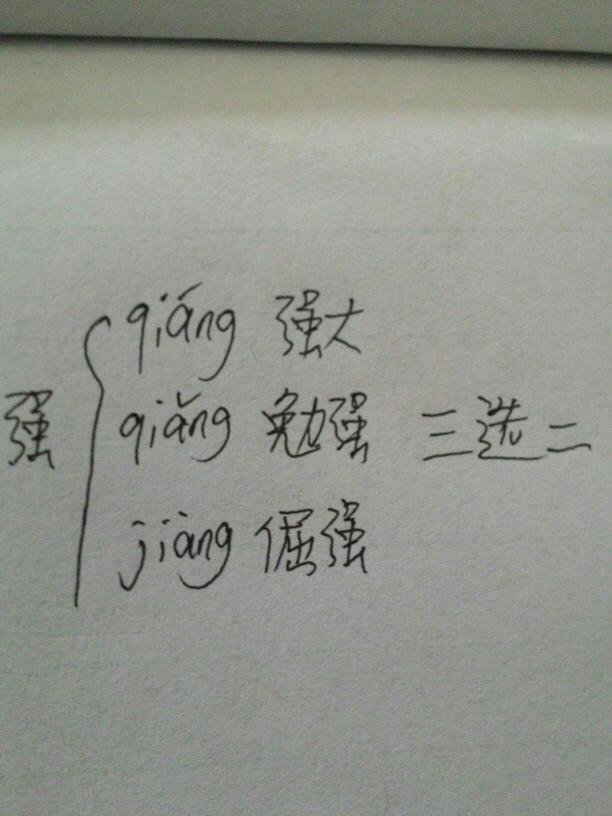 qiáng 强大
强 qiǎng 勉强 三选二
jiàng 倔强